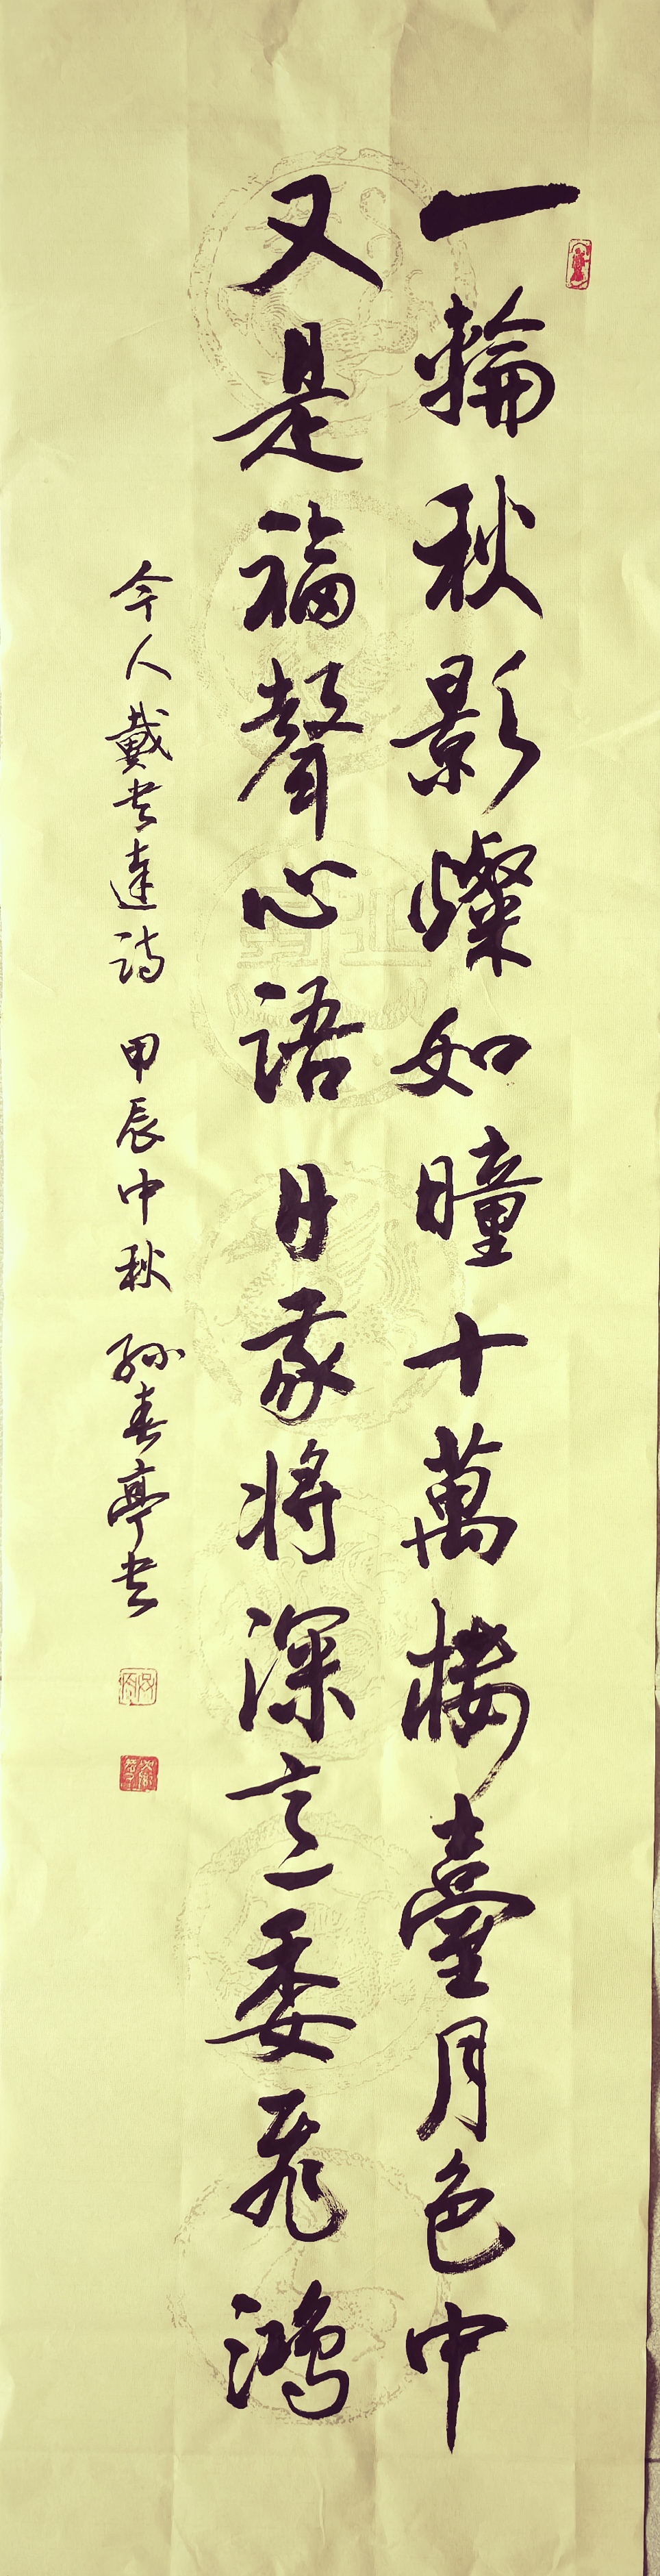 一輪秋影燦如曈十萬楼臺月色中
又是福聲心語日家将深意委飛鴻
今人戴书達诗 甲辰中秋 孙春亭书